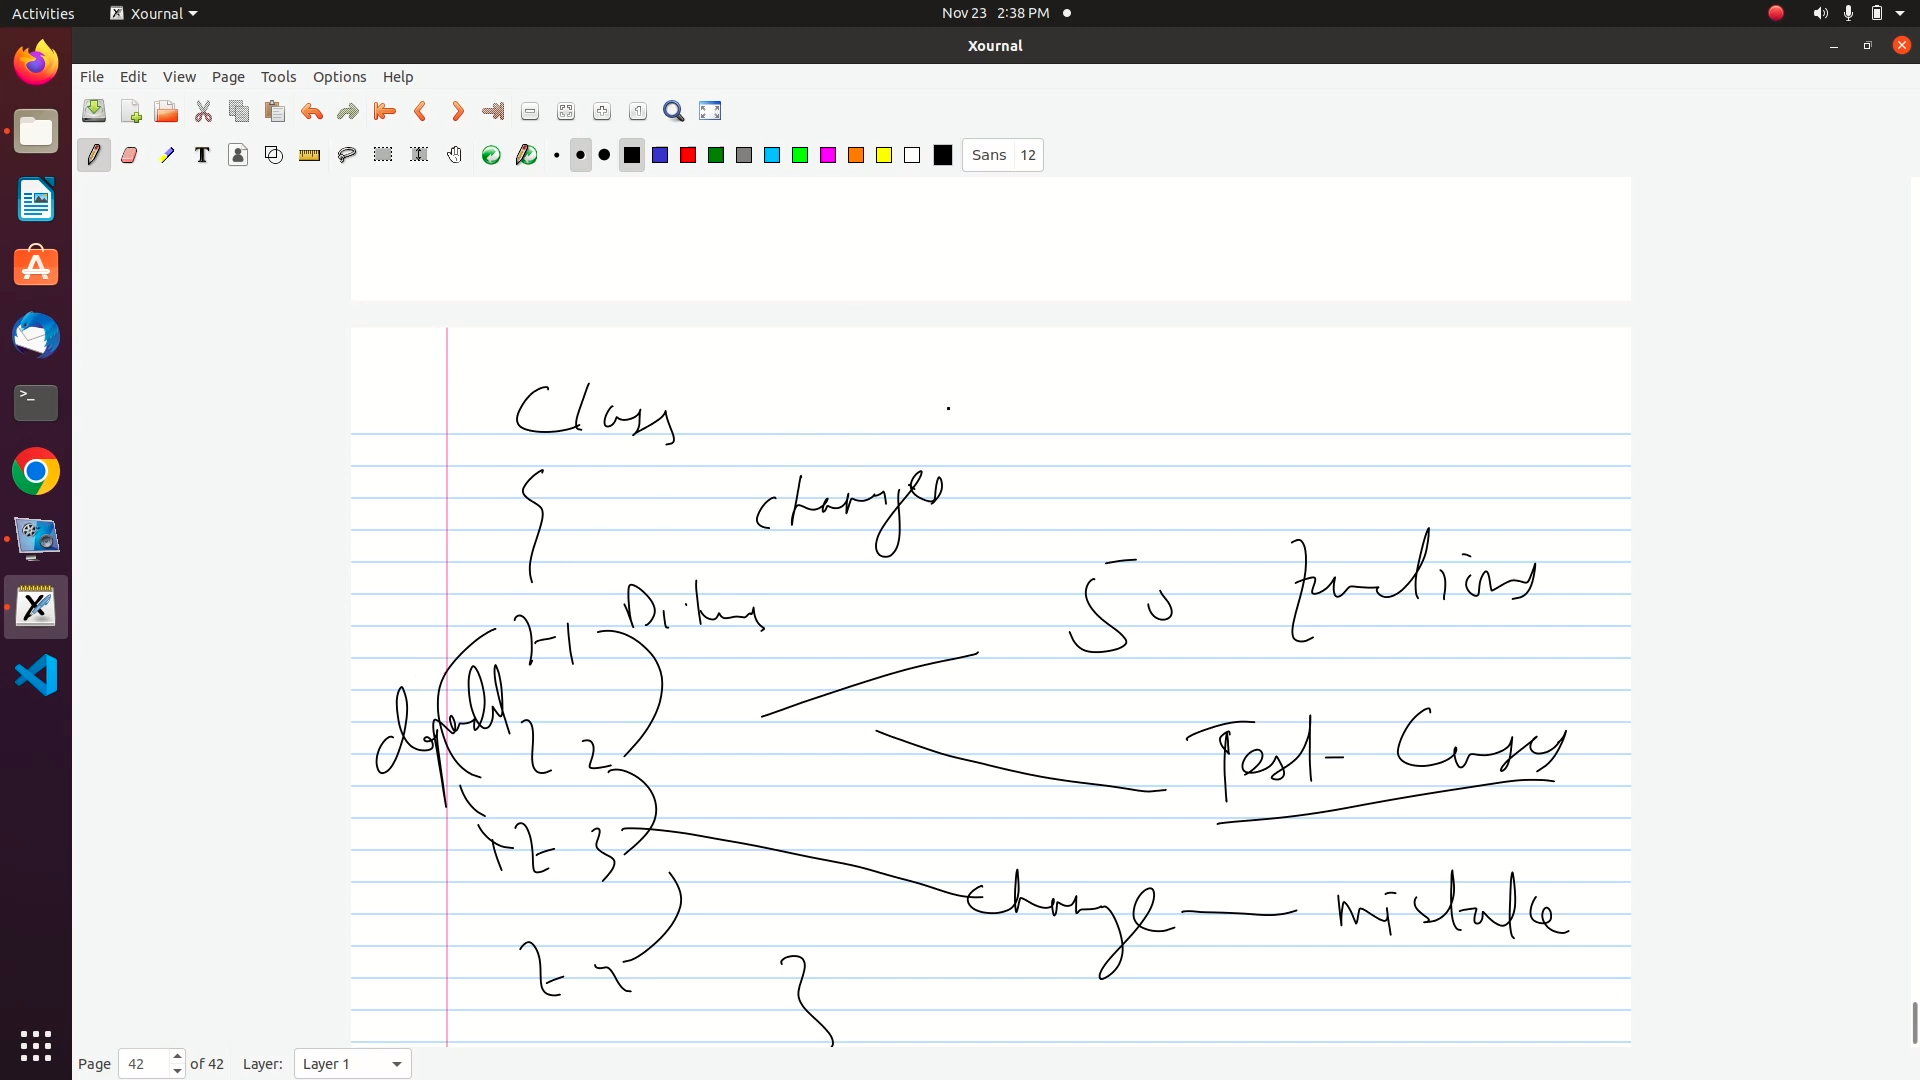 Activities Xournal Nov 23 2:38 PM
Xournal
File Edit View Page Tools Options Help
T Sans 12
Class
{
changes
50 functions
F1
depend
F 2
Test - Cases
F 3
change — mistake
F
}
Page 42 of 42 Layer: Layer 1